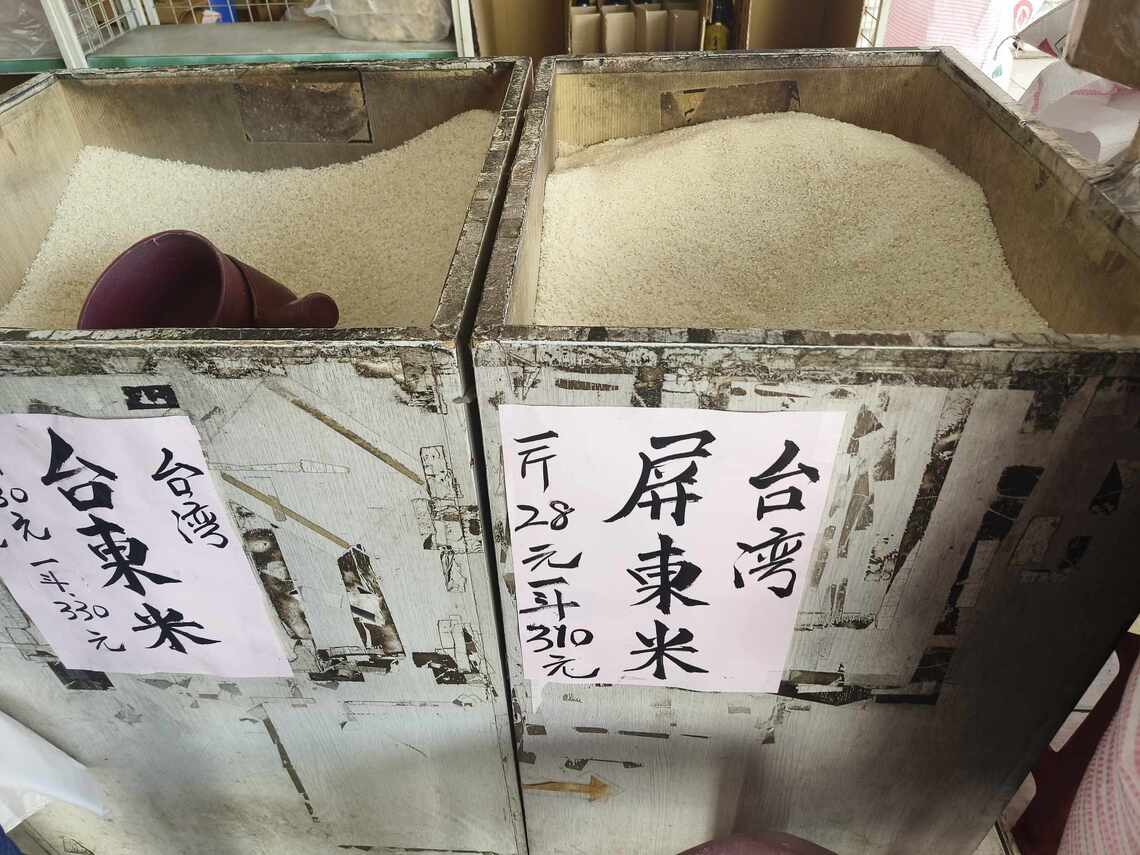 台湾
台東米
30元
一斗330元
台湾
屏東米
一斤28元一斗310元